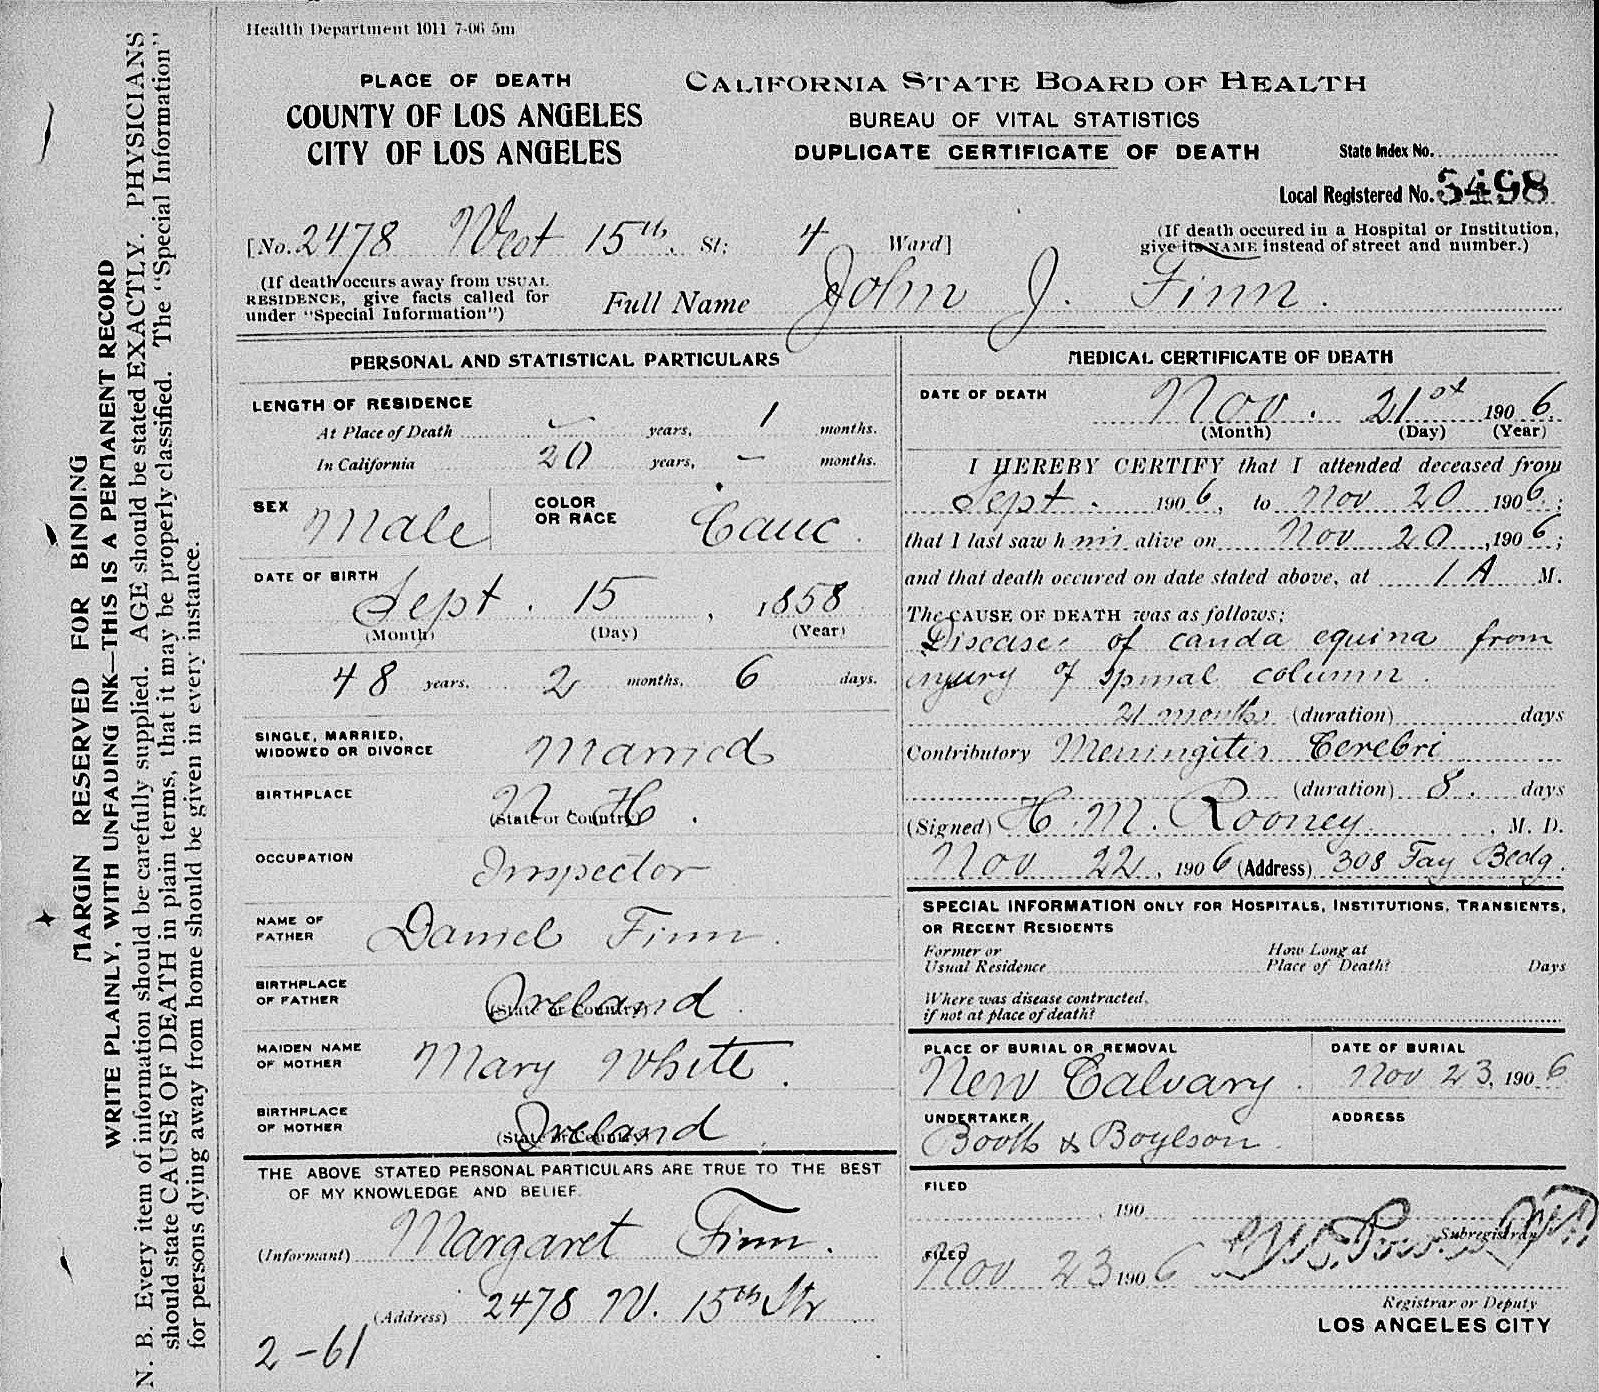 Health Department 1011 7-06 5m
MARGIN RESERVED FOR BINDING
WRITE PLAINLY, WITH UNFADING INK—THIS IS A PERMANENT RECORD
N. B. Every item of information should be carefully supplied. AGE should be stated EXACTLY. PHYSICIANS
should state CAUSE OF DEATH in plain terms, that it may be properly classified. The "Special Information"
for persons dying away from home should be given in every instance.
PLACE OF DEATH
COUNTY OF LOS ANGELES
CITY OF LOS ANGELES
CALIFORNIA STATE BOARD OF HEALTH
BUREAU OF VITAL STATISTICS
DUPLICATE CERTIFICATE OF DEATH
State Index No.
Local Registered No. 5498
[No. 2478 West 15th. St: 4 Ward]
(If death occured in a Hospital or Institution,
give its NAME instead of street and number.)
(If death occurs away from USUAL
RESIDENCE, give facts called for
under "Special Information")
Full Name John J. Finn.
PERSONAL AND STATISTICAL PARTICULARS
LENGTH OF RESIDENCE
At Place of Death years, 1 months.
In California 20 years, – months.
SEX Male
COLOR
OR RACE Cauc.
DATE OF BIRTH
Sept. 15, 1858
(Month) (Day) (Year)
48 years. 2 months, 6 days.
SINGLE, MARRIED,
WIDOWED OR DIVORCE Married
BIRTHPLACE
(State or Country) N. H.
OCCUPATION Inspector
NAME OF
FATHER Daniel Finn.
BIRTHPLACE
OF FATHER
(State or Country) Ireland.
MAIDEN NAME
OF MOTHER Mary White.
BIRTHPLACE
OF MOTHER
(State or Country) Ireland.
THE ABOVE STATED PERSONAL PARTICULARS ARE TRUE TO THE BEST
OF MY KNOWLEDGE AND BELIEF.
(Informant) Margaret Finn.
(Address) 2478 W. 15th Str
2-61
MEDICAL CERTIFICATE OF DEATH
DATE OF DEATH
Nov. 21st 1906.
(Month) (Day) (Year)
I HEREBY CERTIFY that I attended deceased from
Sept. 1906, to Nov 20 1906;
that I last saw him alive on Nov 20, 1906;
and that death occured on date stated above, at 1 A M.
The CAUSE OF DEATH was as follows:
Disease of cauda equina from
injury of spinal column.
21 months (duration) days
Contributory Meningitis Cerebri
(duration) 8. days
(Signed) H. M. Rooney, M. D.
Nov 22, 1906 (Address) 308 Fay Bldg.
SPECIAL INFORMATION ONLY FOR HOSPITALS, INSTITUTIONS, TRANSIENTS,
OR RECENT RESIDENTS
Former or
Usual Residence
How Long at
Place of Death? Days
Where was disease contracted,
if not at place of death?
PLACE OF BURIAL OR REMOVAL
New Calvary.
DATE OF BURIAL
Nov 23, 1906
UNDERTAKER
Booth & Boylson.
ADDRESS
FILED
, 190
Subregistrar
FILED
Nov 23 1906
Registrar or Deputy
LOS ANGELES CITY